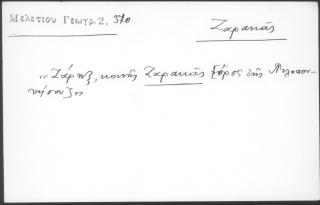 Μελετίου Γεωγρ. 2, 370
Ζαρακᾶς
"Ζάρηξ, κοινῶς Ζαρακᾶς [ὄρος τῆς Πελοπον-
νήσου]"